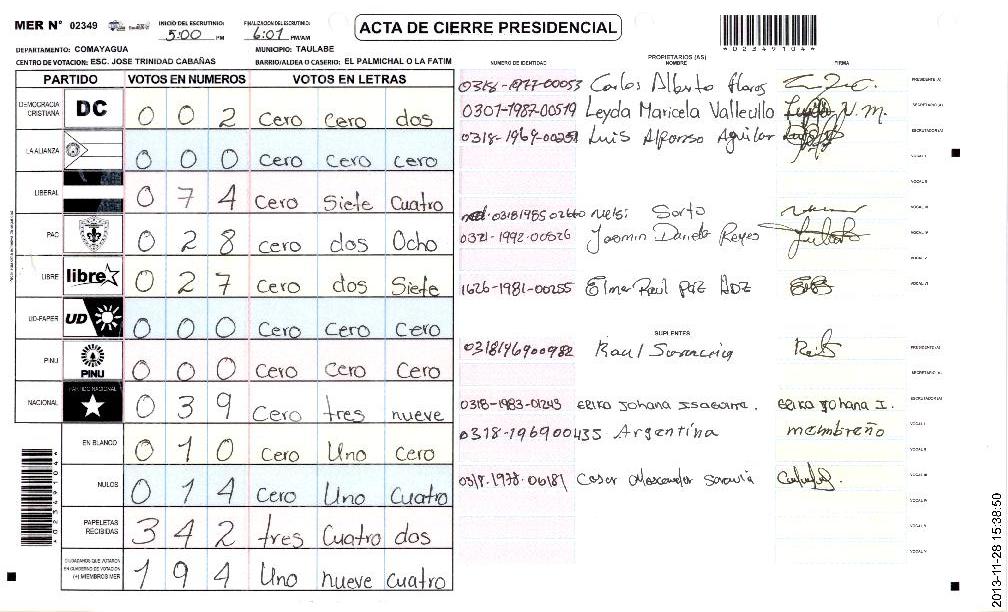 MER N° 02349
INICIO DEL ESCRUTINIO: 5:00 PM
FINALIZACION DEL ESCRUTINIO: 6:01 PM/AM
ACTA DE CIERRE PRESIDENCIAL
*023491044*
DEPARTAMENTO: COMAYAGUA
MUNICIPIO: TAULABE
CENTRO DE VOTACION: ESC. JOSE TRINIDAD CABAÑAS
BARRIO/ALDEA O CASERIO: EL PALMICHAL O LA FATIM
PARTIDO VOTOS EN NUMEROS VOTOS EN LETRAS
DEMOCRACIA CRISTIANA DC 0 0 2 Cero Cero dos
LA ALIANZA 0 0 0 Cero Cero cero
LIBERAL 0 7 4 Cero Siete Cuatro
PAC 0 2 8 cero dos Ocho
LIBRE libre 0 2 7 Cero dos Siete
UD-FAPER UD 0 0 0 Cero Cero Cero
PINU PINU 0 0 0 Cero Cero Cero
NACIONAL PARTIDO NACIONAL 0 3 9 Cero tres nueve
EN BLANCO 0 1 0 Cero Uno Cero
NULOS 0 1 4 Cero Uno Cuatro
PAPELETAS RECIBIDAS 3 4 2 tres Cuatro dos
CIUDADANOS QUE VOTARON EN CUADERNO DE VOTACION (+) MIEMBROS MER 1 9 4 Uno nueve cuatro
PROPIETARIOS (AS)
NUMERO DE IDENTIDAD NOMBRE FIRMA
0318-1977-00053 Carlos Alberto Flores PRESIDENTE (A)
0307-1987-00519 Leyda Maricela Vallecillo V. M. SECRETARIO (A)
0318-1969-00251 Luis Alfonso Aguilar ESCRUTADOR (A)
VOCAL I
VOCAL II
0318198502660 Nelsi Sorto VOCAL III
0321-1992-00526 Jasmin Daniela Reyes VOCAL IV
VOCAL V
1626-1981-00255 Elmer Raul Paz HDZ VOCAL VI
SUPLENTES
0318196900982 Raul PRESIDENTE (A)
SECRETARIO (A)
0318-1983-01243 Erika Johana Isaguirre. Erika Johana I. ESCRUTADOR (A)
0318-196900435 Argentina membreño VOCAL I
VOCAL II
0318-1978-00181 Cesar VOCAL III
VOCAL IV
VOCAL V
VOCAL VI
*023491044*
2013-11-28 15:38:50